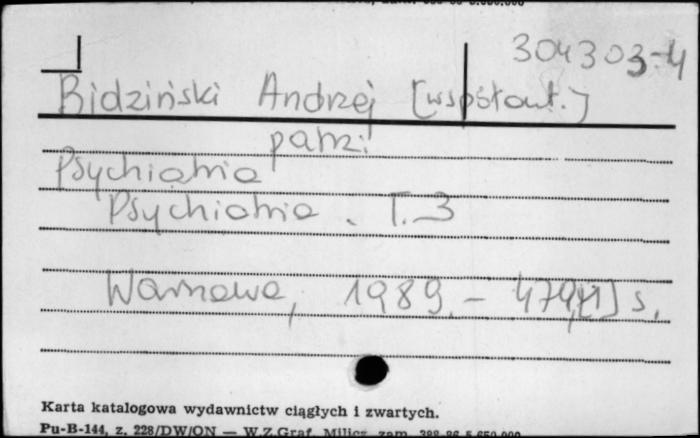 304303-4
Bidziński Andrzej [współaut.]
patrz:
Psychiatria
Psychiatria. T. 3
Warszawa, 1989. - 479,[1] s.
Karta katalogowa wydawnictw ciągłych i zwartych.
Pu-B-144, z. 228/DW/ON — W.Z.Graf. Milicz, zam. 388-86 5.650.000